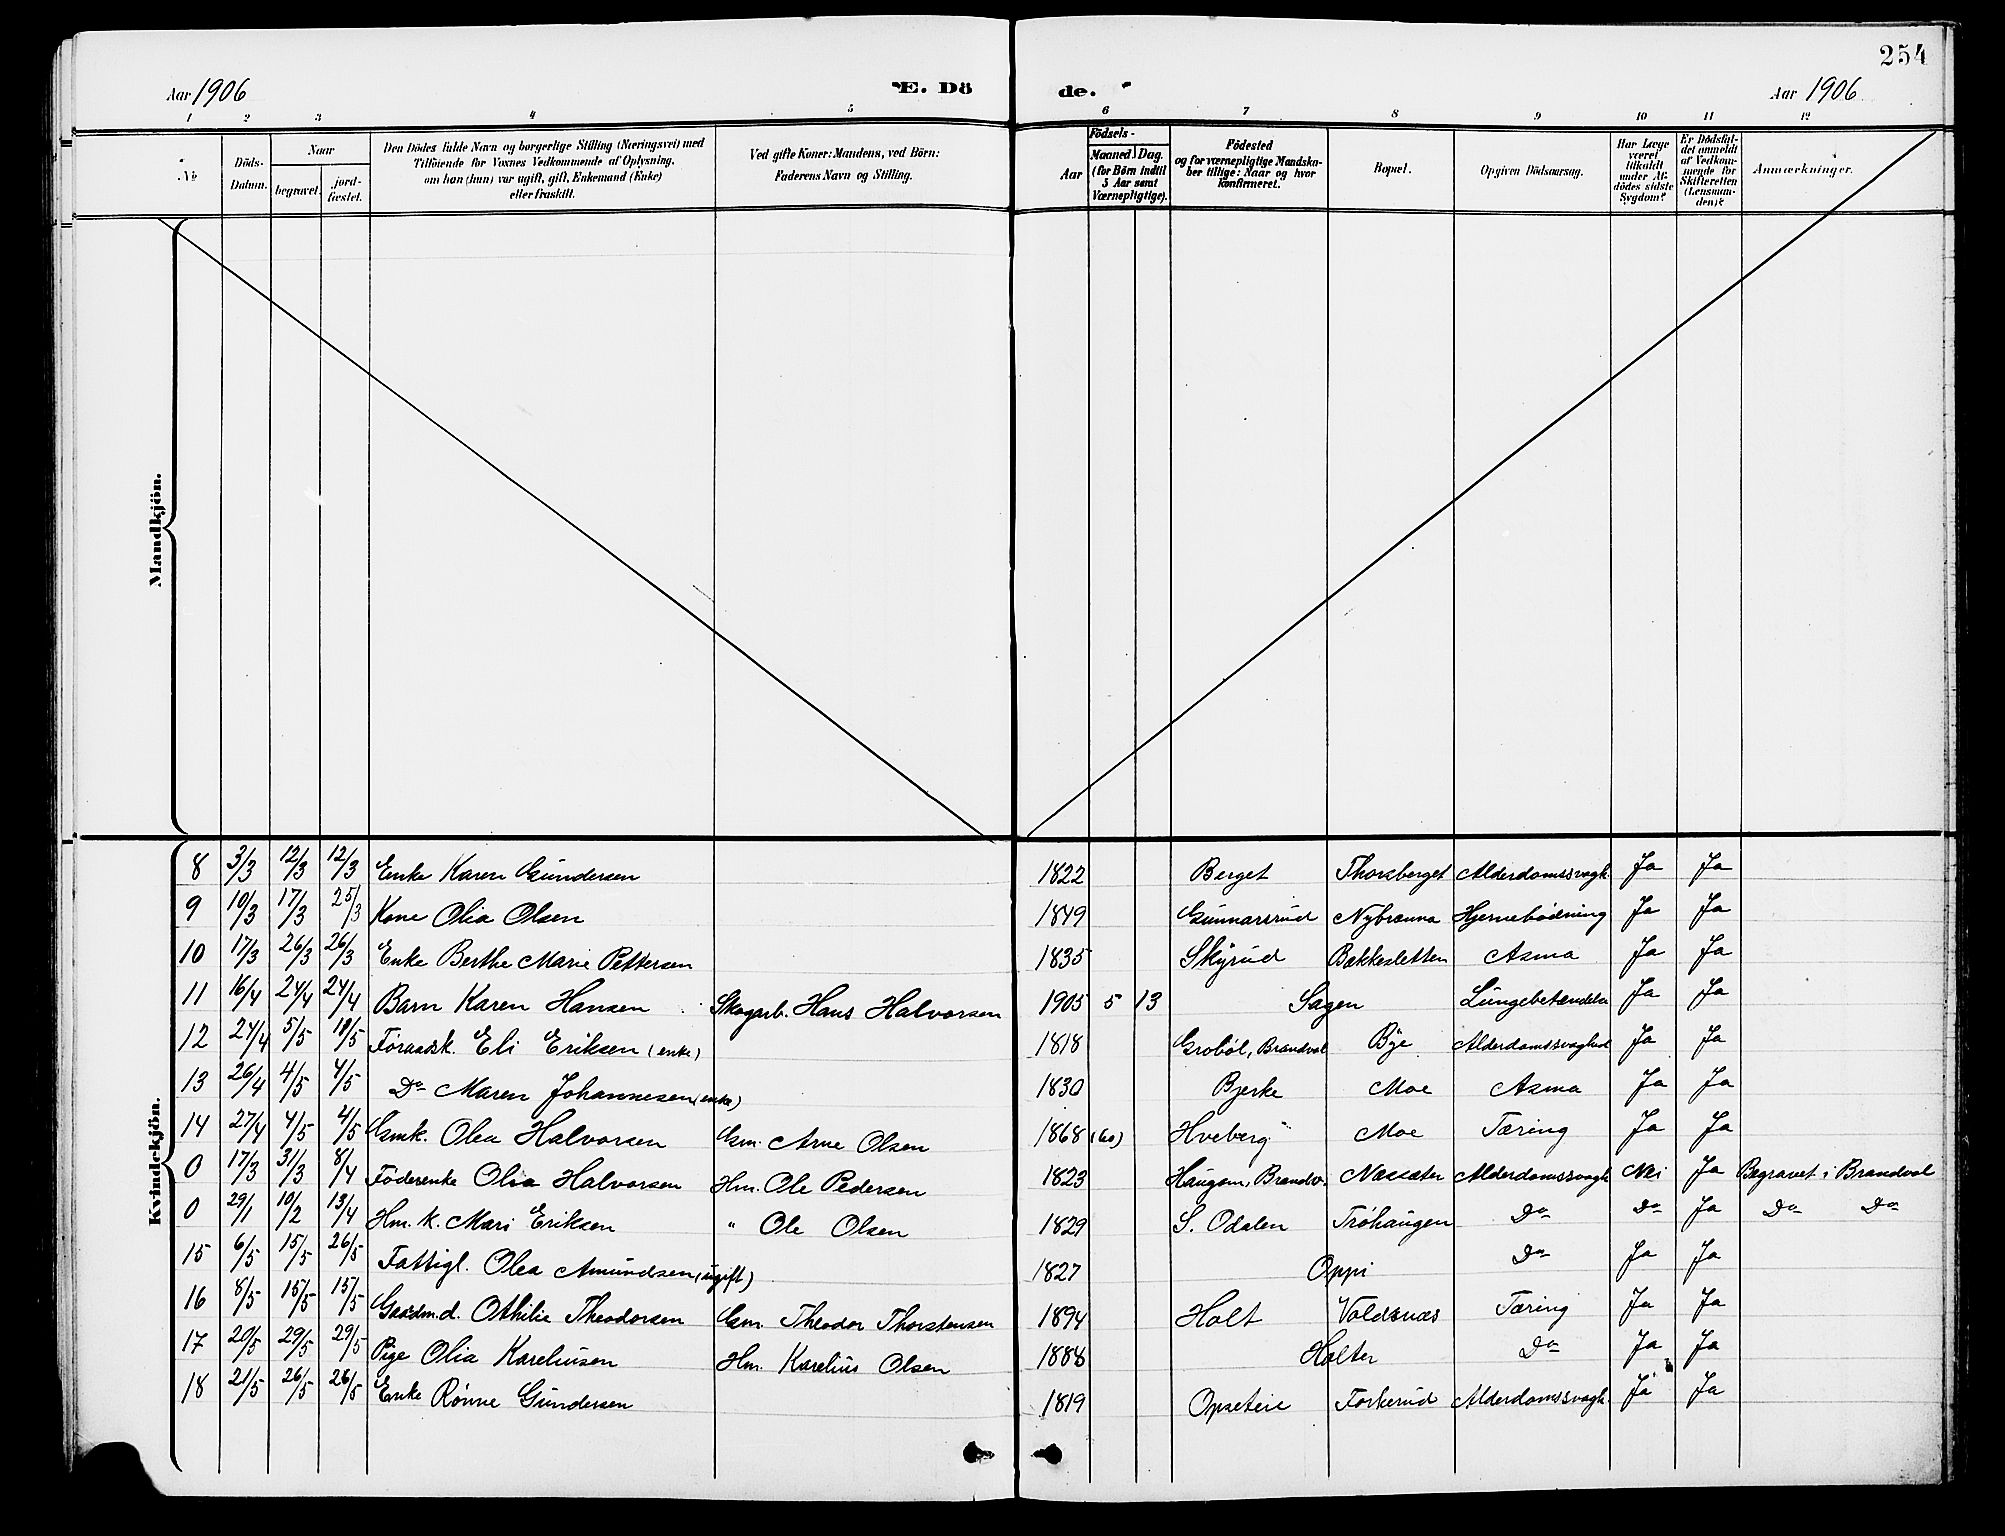 254
Aar 1906 E. Dö de. Aar 1906
1 2 3 4 5 6 7 8 9 10 11 12
No
Döds-Datum.
Naar
begravet. jord-fæstet.
Den Dödes fulde Navn og borgerlige Stilling (Næringsvei) med
Tilföiende for Voxnes Vedkommende af Oplysning,
om han (hun) var ugift, gift, Enkemand (Enke)
eller fraskilt.
Ved gifte Koner: Mandens, ved Börn:
Faderens Navn og Stilling.
Födsels-
Aar
Maaned. Dag.
(for Börn indtil
5 Aar samt
Værnepligtige).
Födested
og for værnepligtige Mandska-
ber tillige: Naar og hvor
konfirmeret.
Bopæl.
Opgiven Dödsaarsag.
Har Læge
været
tilkaldt
under Af-
dödes sidste
Sygdom?
Er Dödsfal-
det anmeldt
af Vedkom-
mende for
Skifteretten
(Lensman-
den)?
Anmærkninger.
Mandkjön.
Kvindekjön.
8 3/3 12/3 12/3 Enke Karen Gundersen 1822 Berget Thorsberget Alderdomssvagh. Ja Ja
9 10/3 17/3 25/3 Kone Olia Olsen 1849 Gunnarsrud Nybrænna Hjernebödning Ja Ja
10 17/3 26/3 26/3 Enke Berthe Marie Pettersen 1835 Skyrud Bakkesletten Asma Ja Ja
11 16/4 24/4 24/4 Barn Karen Hansen Skogarb. Hans Halvorsen 1905 5 13 Sagen Lungebetændelse Ja Ja
12 24/4 5/5 19/5 Föraadsk. Eli Eriksen (enke) 1818 Groböl, Brandval Bye Alderdomssvaghed Ja Ja
13 26/4 4/5 4/5 Do Maren Johannesen (enke) 1830 Bjerke Moe Asma Ja Ja
14 27/4 4/5 4/5 Gmk. Olea Halvorsen Gm. Arne Olsen 1868 (60) Hveberg Moe Tæring Ja Ja
0 17/3 31/3 8/4 Föderenke Olia Halvorsen Hm. Ole Pedersen 1823 Haugom, Brandv. Næssæter Alderdomssvagh Nei Ja Begravet i Brandval
0 29/1 10/2 13/4 Hm. K. Mari Eriksen " Ole Olsen 1829 S. Odalen Tröhaugen Do Do Ja Do Do
15 6/5 15/5 26/5 Fattigl. Olea Amundsen (ugift) 1827 Oppi Do Ja Ja
16 8/5 15/5 15/5 Gaardm.d. Othilie Theodorsen Gm. Theodor Thorstensen 1894 Holt Voldsnæs Tæring Ja Ja
17 20/5 29/5 29/5 Pige Olia Kareliusen Hm. Karelius Olsen 1888 Holter Do Ja Ja
18 21/5 26/5 26/5 Enke Rönne Gundersen 1819 Opseteie Forkerud Alderdomssvagh. Ja Ja